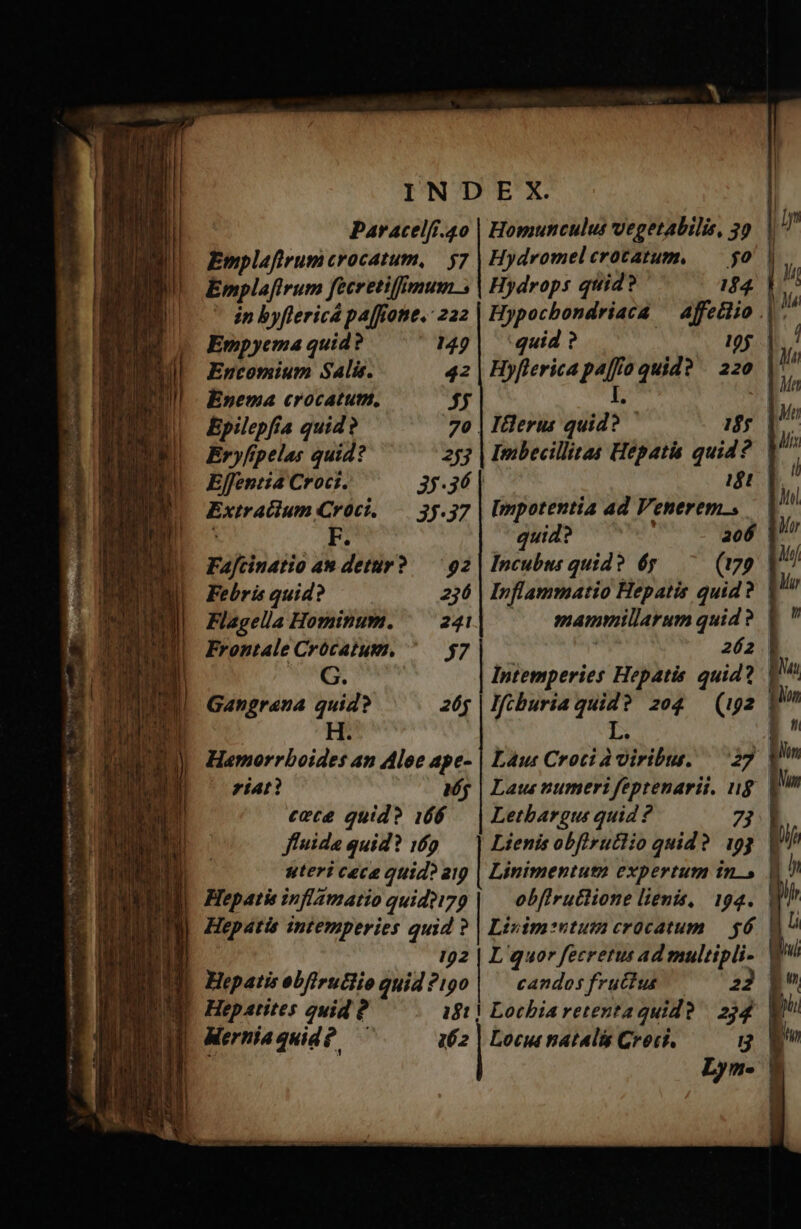 INDEX.
Paracelſi. 40
Emplaſtrum crocatum, 57
Emplaſtrum ſecretiſſimum
in hyſtericâ paſſione. 222
Empyema quid? 149
Encomium Salis. 42
Enema crocatum, 55
Epilepſia quid? 70
Eryſipelas quid? 253
Eſſentia Croci. 35.36
Extractum Croci. 35.37
F.
Faſcinatio an detur? 92
Febris quid? 236
Flagella Hominum. 241
Frontale Crocatum. 57
G.
Gangræna quid? 265
H.
Hæmorrhoides an Aloe ape-
riat? 165
cæcæ quid? 166
fluidæ quid? 169
uteri cæcæ quid? 219
Hepatis inflāmatio quid? 179
Hepatis intemperies quid?
192
Hepatis obſtructio quid? 190
Hepatites quid? 181
Hernia quid? 162
Homunculus vegetabilis, 39
Hydromel crocatum. 50
Hydrops quid? 184
Hypochondriaca affectio
quid? 195
Hyſterica paſſio quid? 220
I.
Icterus quid? 185
Imbecillitas Hepatis quid?
181
Impotentia ad Venerem
quid? 206
Incubus quid? 65 (179
Inflammatio Hepatis quid?
mammillarum quid?
262
Intemperies Hepatis quid?
Iſchuria quid? 204 (192
L.
Laus Croci à viribus. 27
Laus numeri ſeptenarii. 118
Lethargus quid? 73
Lienis obſtructio quid? 193
Linimentum expertum in
obſtructione lienis, 194.
Linimentum crocatum 56
Liquor ſecretus ad multipli-
candos fructus 22
Lochia retenta quid? 234
Locus natalis Croci, 13
Lym-